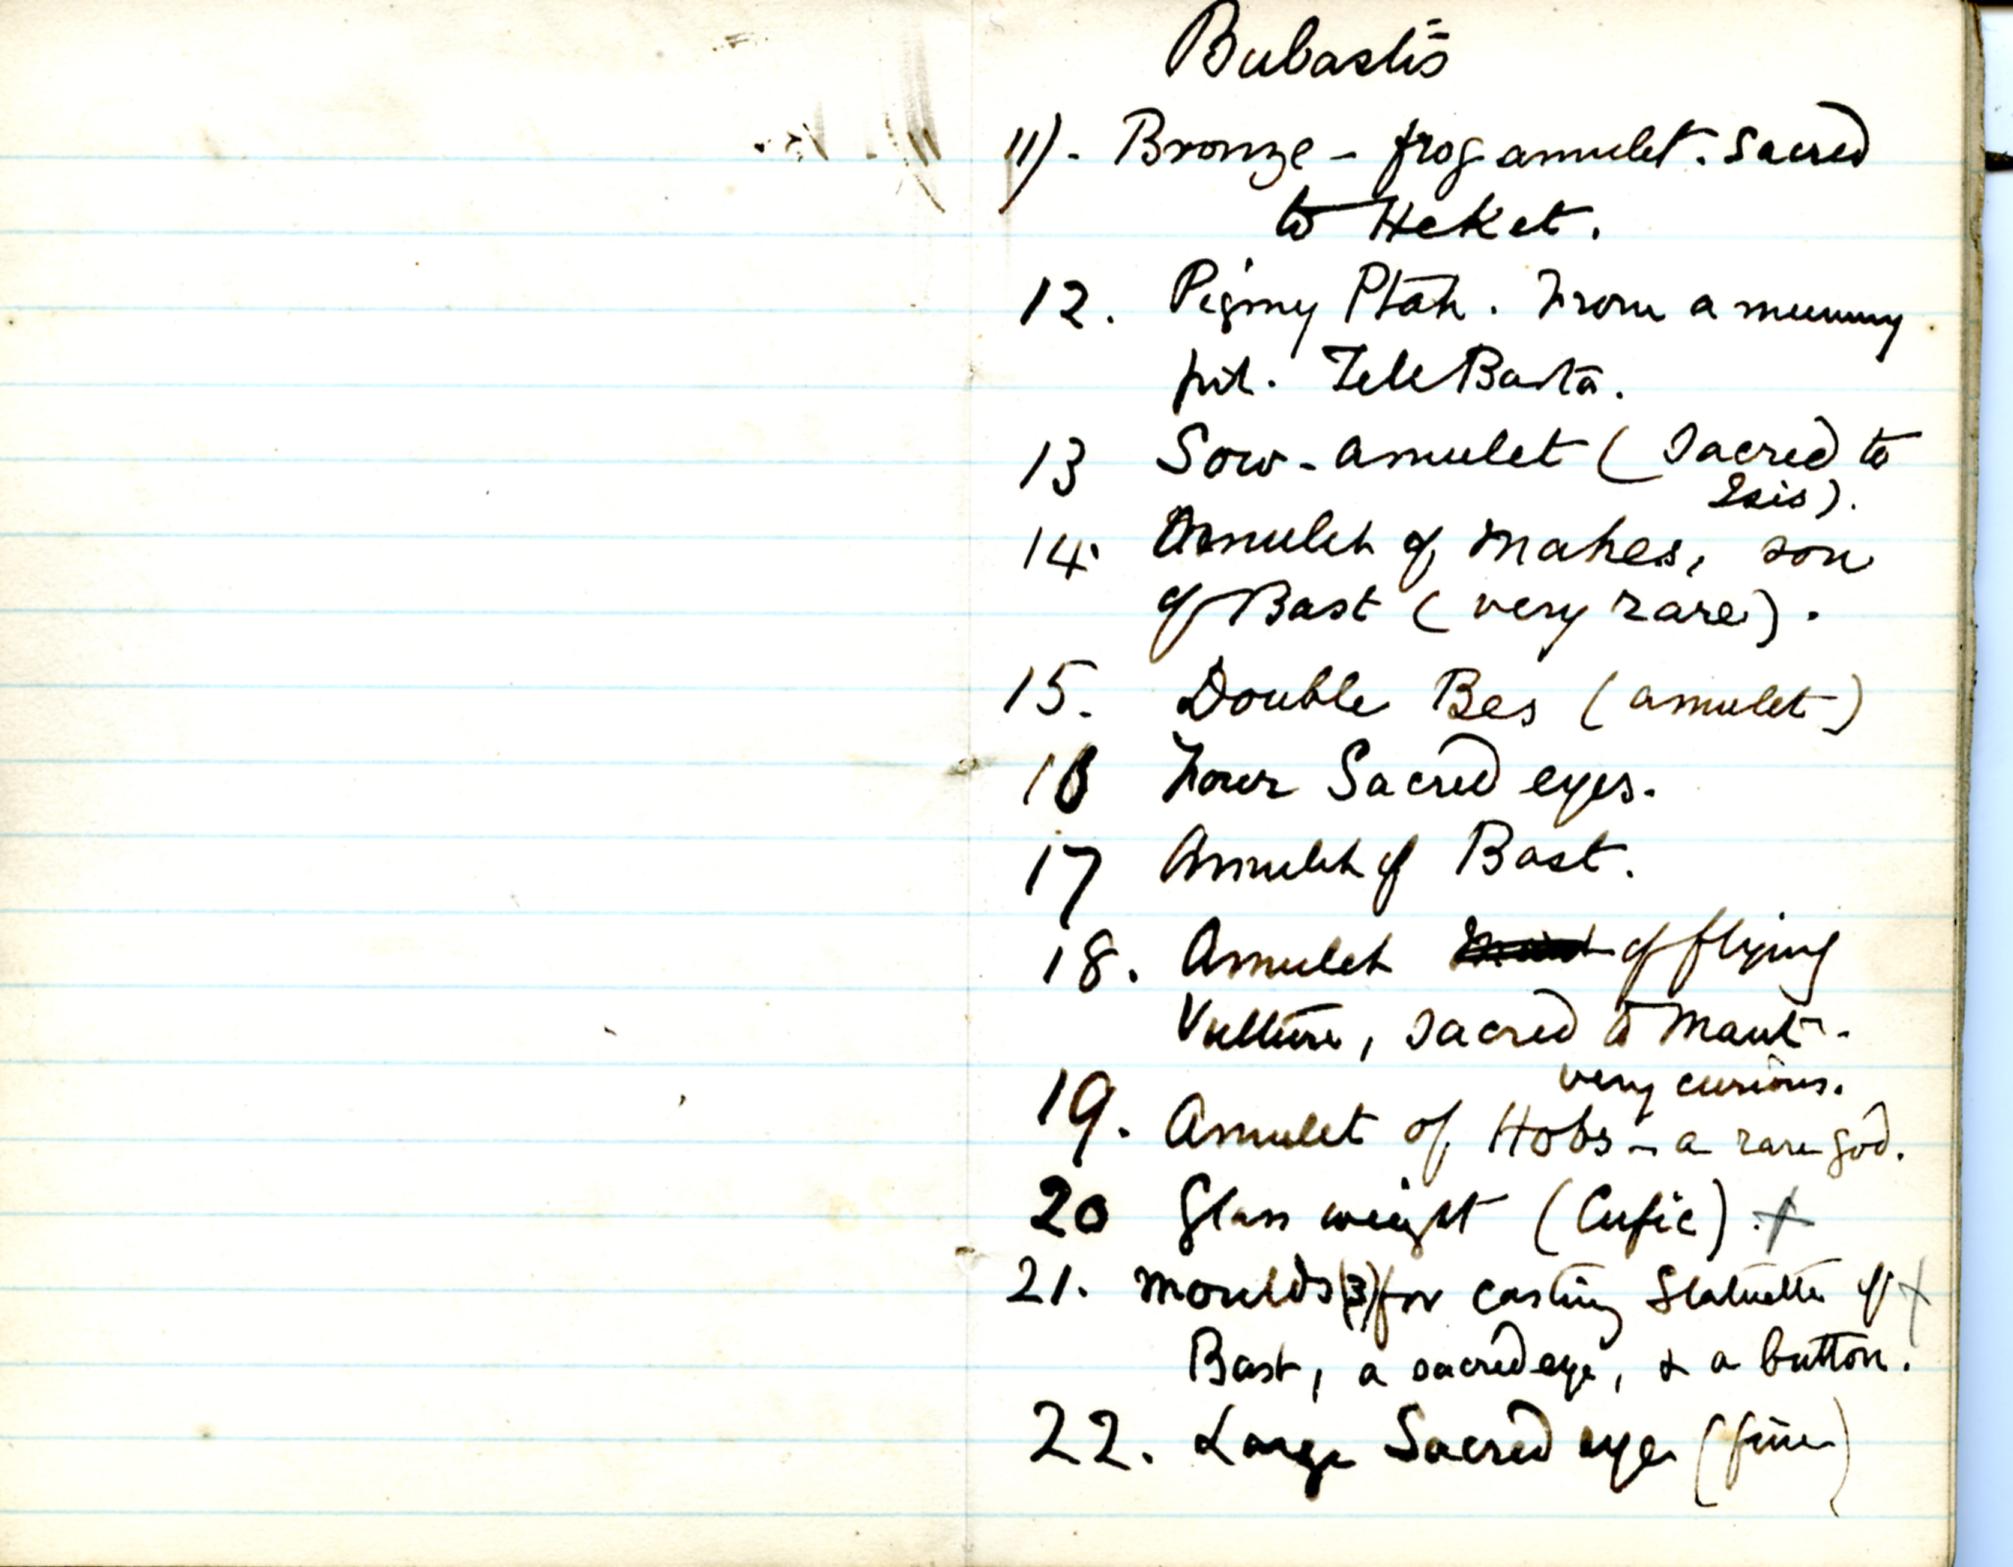 Bubastis
11). Bronze - frog amulet. Sacred
to Heket.
12. Pigmy Ptah. From a mummy
pit. Tell Basta.
13 Sow-amulet ( Sacred to
Isis).
14. Amulet of Mahes, son
of Bast ( very rare).
15. Double Bes (amulet)
16 Four Sacred eyes.
17 Amulet of Bast.
18. Amulet of flying
Vulture, sacred to Maut-
very curious.
19. Amulet of Hobs - a rare god.
20 Glass weight (Cufic) +
21. Moulds (3) for casting Statuette of +
Bast, a sacred eye, & a button.
22. Large Sacred eye (fine)